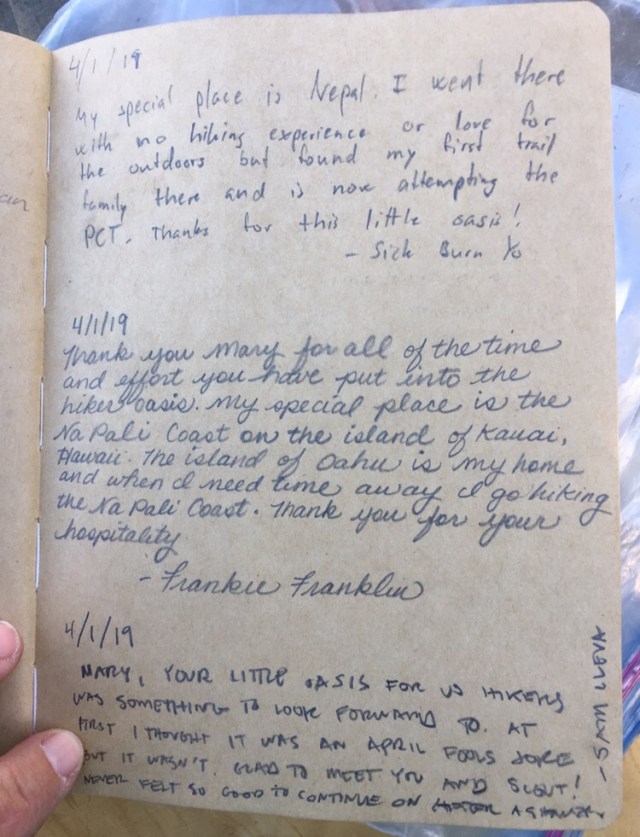 4/1/19
My special place is Nepal. I went there
with no hiking experience or love for
the outdoors but found my first trail
family there and is now attempting the
PCT. Thanks for this little oasis!
- Sick Burn Yo
4/1/19
Thank you Mary for all of the time
and effort you have put into the
hiker oasis. My special place is the
Na Pali Coast on the island of Kauai,
Hawaii. The island of Oahu is my home
and when I need time away I go hiking
the Na Pali Coast. Thank you for your
hospitality
- Frankie Franklin
4/1/19
MARY, YOUR LITTLE OASIS FOR US HIKERS
WAS SOMETHING TO LOOK FORWARD TO. AT
FIRST I THOUGHT IT WAS AN APRIL FOOLS JOKE
BUT IT WASN'T. GLAD TO MEET YOU AND SCOUT!
NEVER FELT SO GOOD TO CONTINUE ON AFTER A SHOWER
- SAM